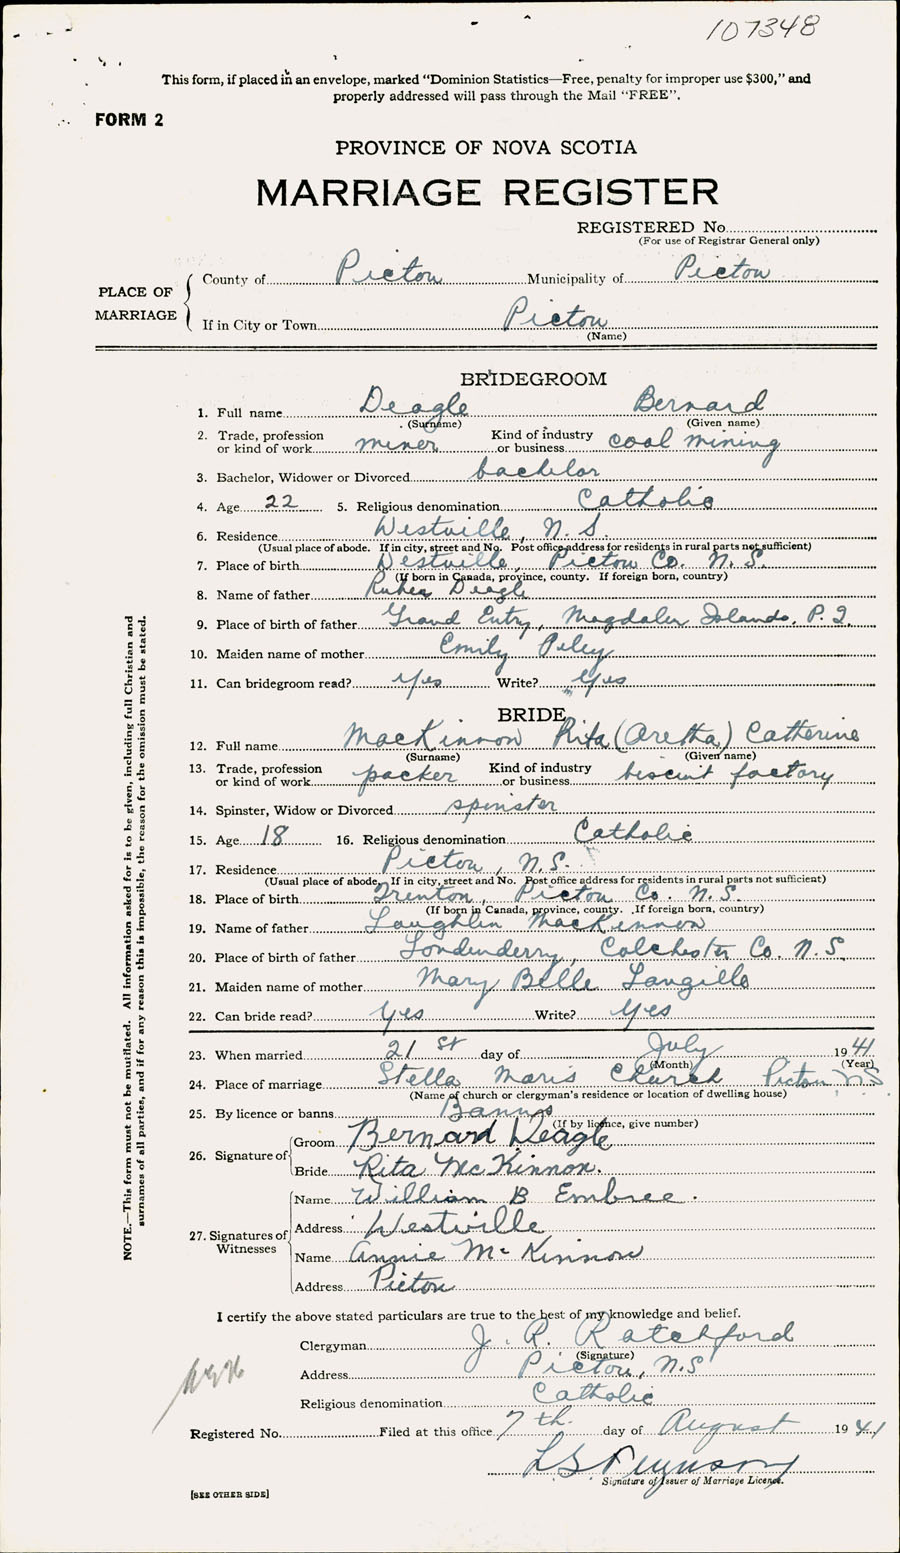 107348
This form, if placed in an envelope, marked “Dominion Statistics—Free, penalty for improper use $300,” and
properly addressed will pass through the Mail “FREE”.
FORM 2
PROVINCE OF NOVA SCOTIA
MARRIAGE REGISTER
REGISTERED No
(For use of Registrar General only)
PLACE OF MARRIAGE
County of Pictou Municipality of Pictou
If in City or Town Pictou
(Name)
BRIDEGROOM
1. Full name Deagle Bernard
(Surname) (Given name)
2. Trade, profession or kind of work miner Kind of industry or business coal mining
3. Bachelor, Widower or Divorced bachelor
4. Age 22 5. Religious denomination Catholic
6. Residence Westville, N. S.
(Usual place of abode. If in city, street and No. Post office address for residents in rural parts not sufficient)
7. Place of birth Westville, Pictou Co. N. S.
(If born in Canada, province, county. If foreign born, country)
8. Name of father Deagle
9. Place of birth of father Grand Entry, Magdalen Islands, P. Q.
10. Maiden name of mother Emily
11. Can bridegroom read? yes Write? yes
BRIDE
12. Full name MacKinnon Rita (Aretha) Catherine
(Surname) (Given name)
13. Trade, profession or kind of work packer Kind of industry or business biscuit factory
14. Spinster, Widow or Divorced spinster
15. Age 18 16. Religious denomination Catholic
17. Residence Pictou, N.S.
(Usual place of abode. If in city, street and No. Post office address for residents in rural parts not sufficient)
18. Place of birth Trenton, Pictou Co. N.S.
(If born in Canada, province, county. If foreign born, country)
19. Name of father Laughlin MacKinnon
20. Place of birth of father Londonderry, Colchester Co. N.S.
21. Maiden name of mother Mary Belle Langille
22. Can bride read? yes Write? yes
23. When married 21 st day of July 1941
(Month) (Year)
24. Place of marriage Stella Maris Church Pictou NS
(Name of church or clergyman's residence or location of dwelling house)
25. By licence or banns Banns
(If by licence, give number)
26. Signature of Groom Bernard Deagle
Bride Rita McKinnon.
27. Signatures of Witnesses Name William B Embree.
Address Westville
Name Annie McKinnon
Address Pictou
I certify the above stated particulars are true to the best of my knowledge and belief.
Clergyman J. R. Ratchford
(Signature)
Address Pictou, N.S
Religious denomination Catholic
Registered No. Filed at this office 7th. day of August 1941
Signature of Issuer of Marriage Licence.
[SEE OTHER SIDE]
NOTE.—This form must not be mutilated. All information asked for is to be given, including full Christian and
surnames of all parties, and if for any reason this is impossible, the reason for the omission must be stated.